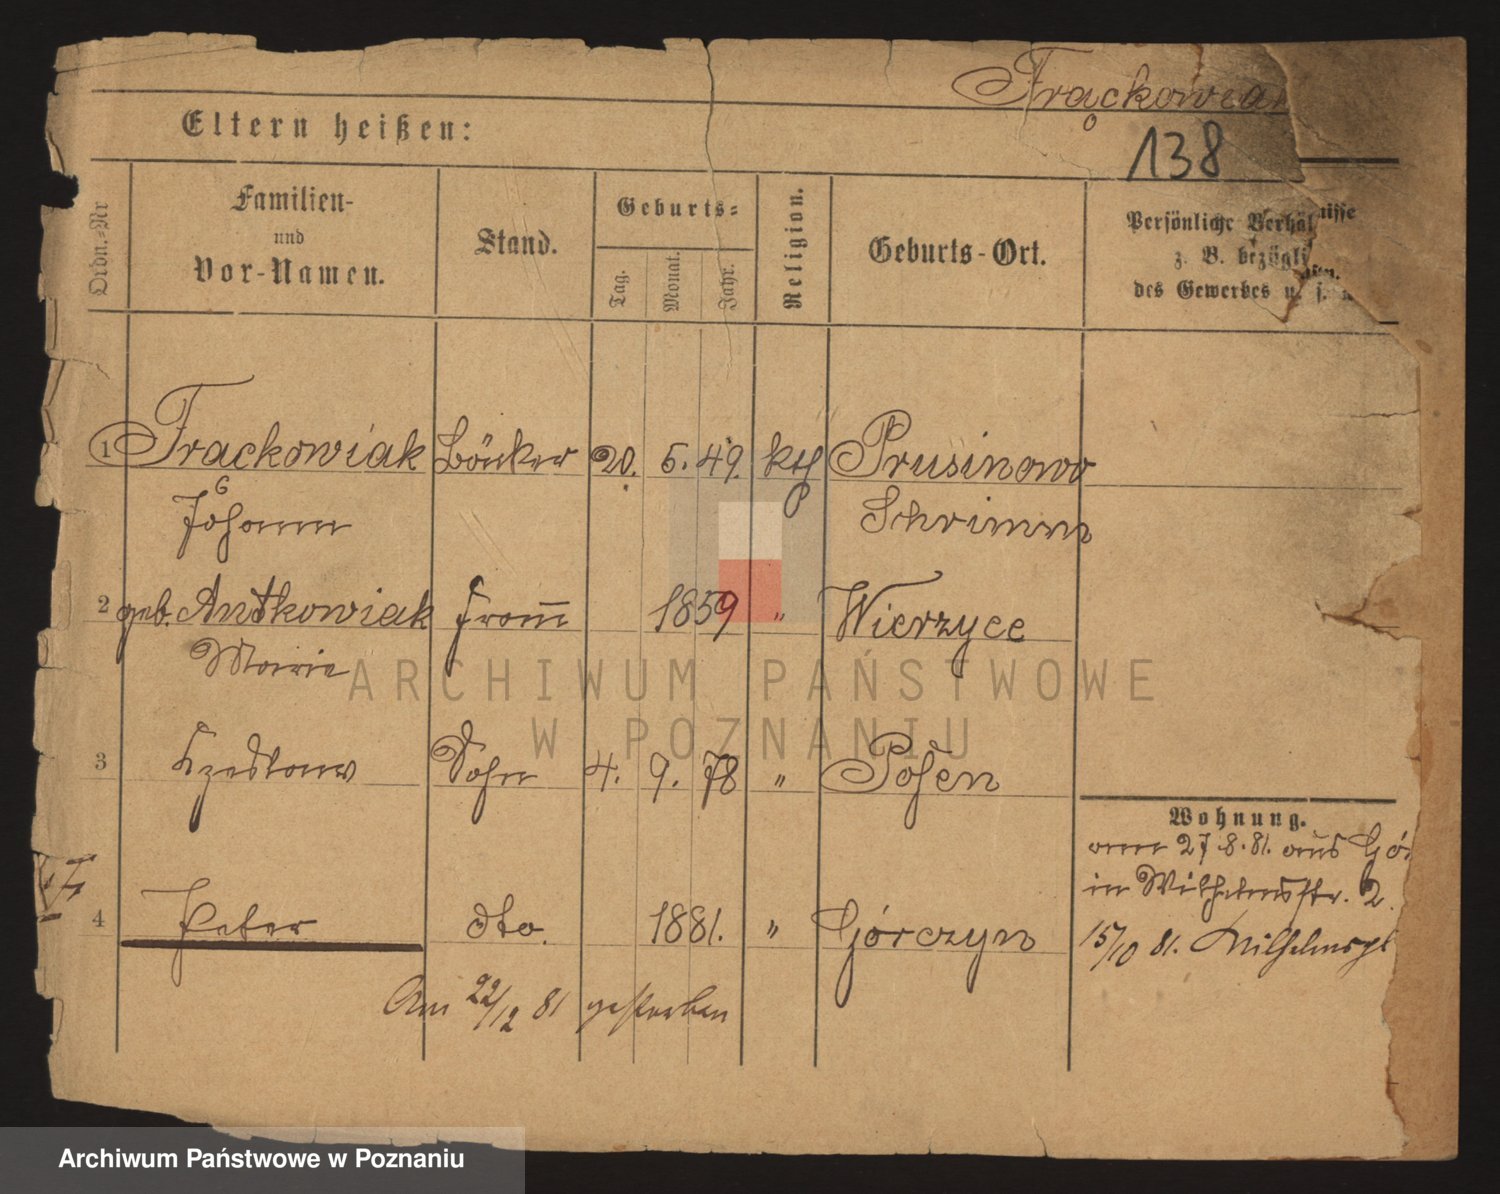 Frąckowiak
Eltern heißen:
138
Ordn.-Nr
Familien-
und
Vor-Namen.
Stand.
Geburts-
Tag.
Monat.
Jahr.
Religion.
Geburts-Ort.
Persönliche Verhäl nisse
z. B. bezügli
des Gewerbes u. s.
1 Frąckowiak Böttcher 20. 5. 49. kth Prusinowo
Johann Schrimm
2 geb. Antkowiak Frau 1859 " Wierzyce
Marie
3 Czeslaus Sohn 4. 9. 78 " Posen
Wohnung.
am 27.8.81. aus Gór
in Wilhelmstr. 2.
4 Peter dto. 1881. " Górczyn
15/10 81. Wilhelmspl
Am 22/12 81 gestorben
ARCHIWUM PAŃSTWOWE
W POZNANIU
Archiwum Państwowe w Poznaniu